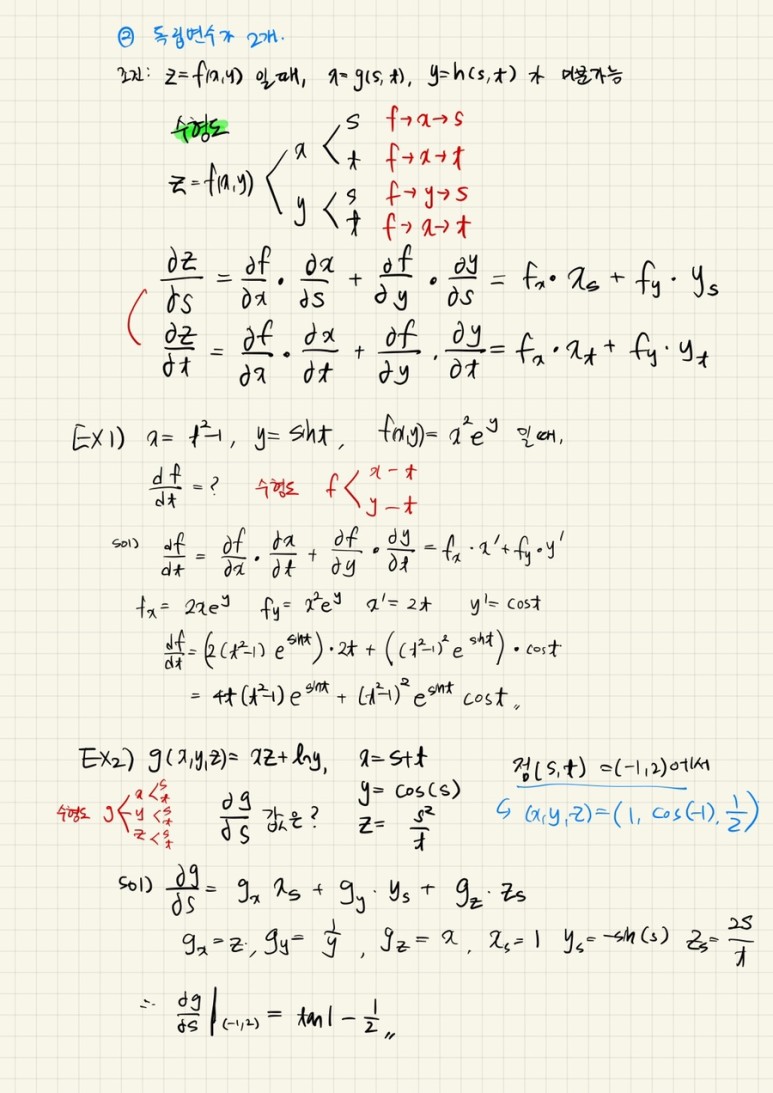 ② 독립변수가 2개.
조건: z=f(x,y) 일 때, x=g(s,t), y=h(s,t) 가 미분가능
수형도
z=f(x,y) < x < s f→x→s
t f→x→t
y < s f→y→s
t f→x→t
∂z/∂s = ∂f/∂x · ∂x/∂s + ∂f/∂y · ∂y/∂s = fx · xs + fy · ys
∂z/∂t = ∂f/∂x · ∂x/∂t + ∂f/∂y · ∂y/∂t = fx · xt + fy · yt
EX1) x= t²-1, y= sint, f(x,y)= x²e^y 일 때,
df/dt = ? 수형도 f < x-t
y-t
sol) df/dt = ∂f/∂x · ∂x/∂t + ∂f/∂y · ∂y/∂t = fx · x' + fy · y'
fx= 2xe^y fy= x²e^y x'= 2t y'= cost
df/dt = (2(t²-1) e^sint) · 2t + ((t²-1)² e^sint) · cost
= 4t(t²-1) e^sint + (t²-1)² e^sint cost 〃
EX2) g(x,y,z)= xz + lny, x= s+t 점(s,t) = (-1,2)에서
수형도 g < x < s t ∂g/∂s 값은? y= cos(s) ↳ (x,y,z)=(1, cos(-1), 1/2)
y < s t z= s²/t
z < s t
sol) ∂g/∂s = gx xs + gy · ys + gz · zs
gx = z, gy = 1/y, gz = x, xs = 1 ys = -sin(s) zs = 2s/t
∴ ∂g/∂s |(-1,2) = tan1 - 1/2 〃